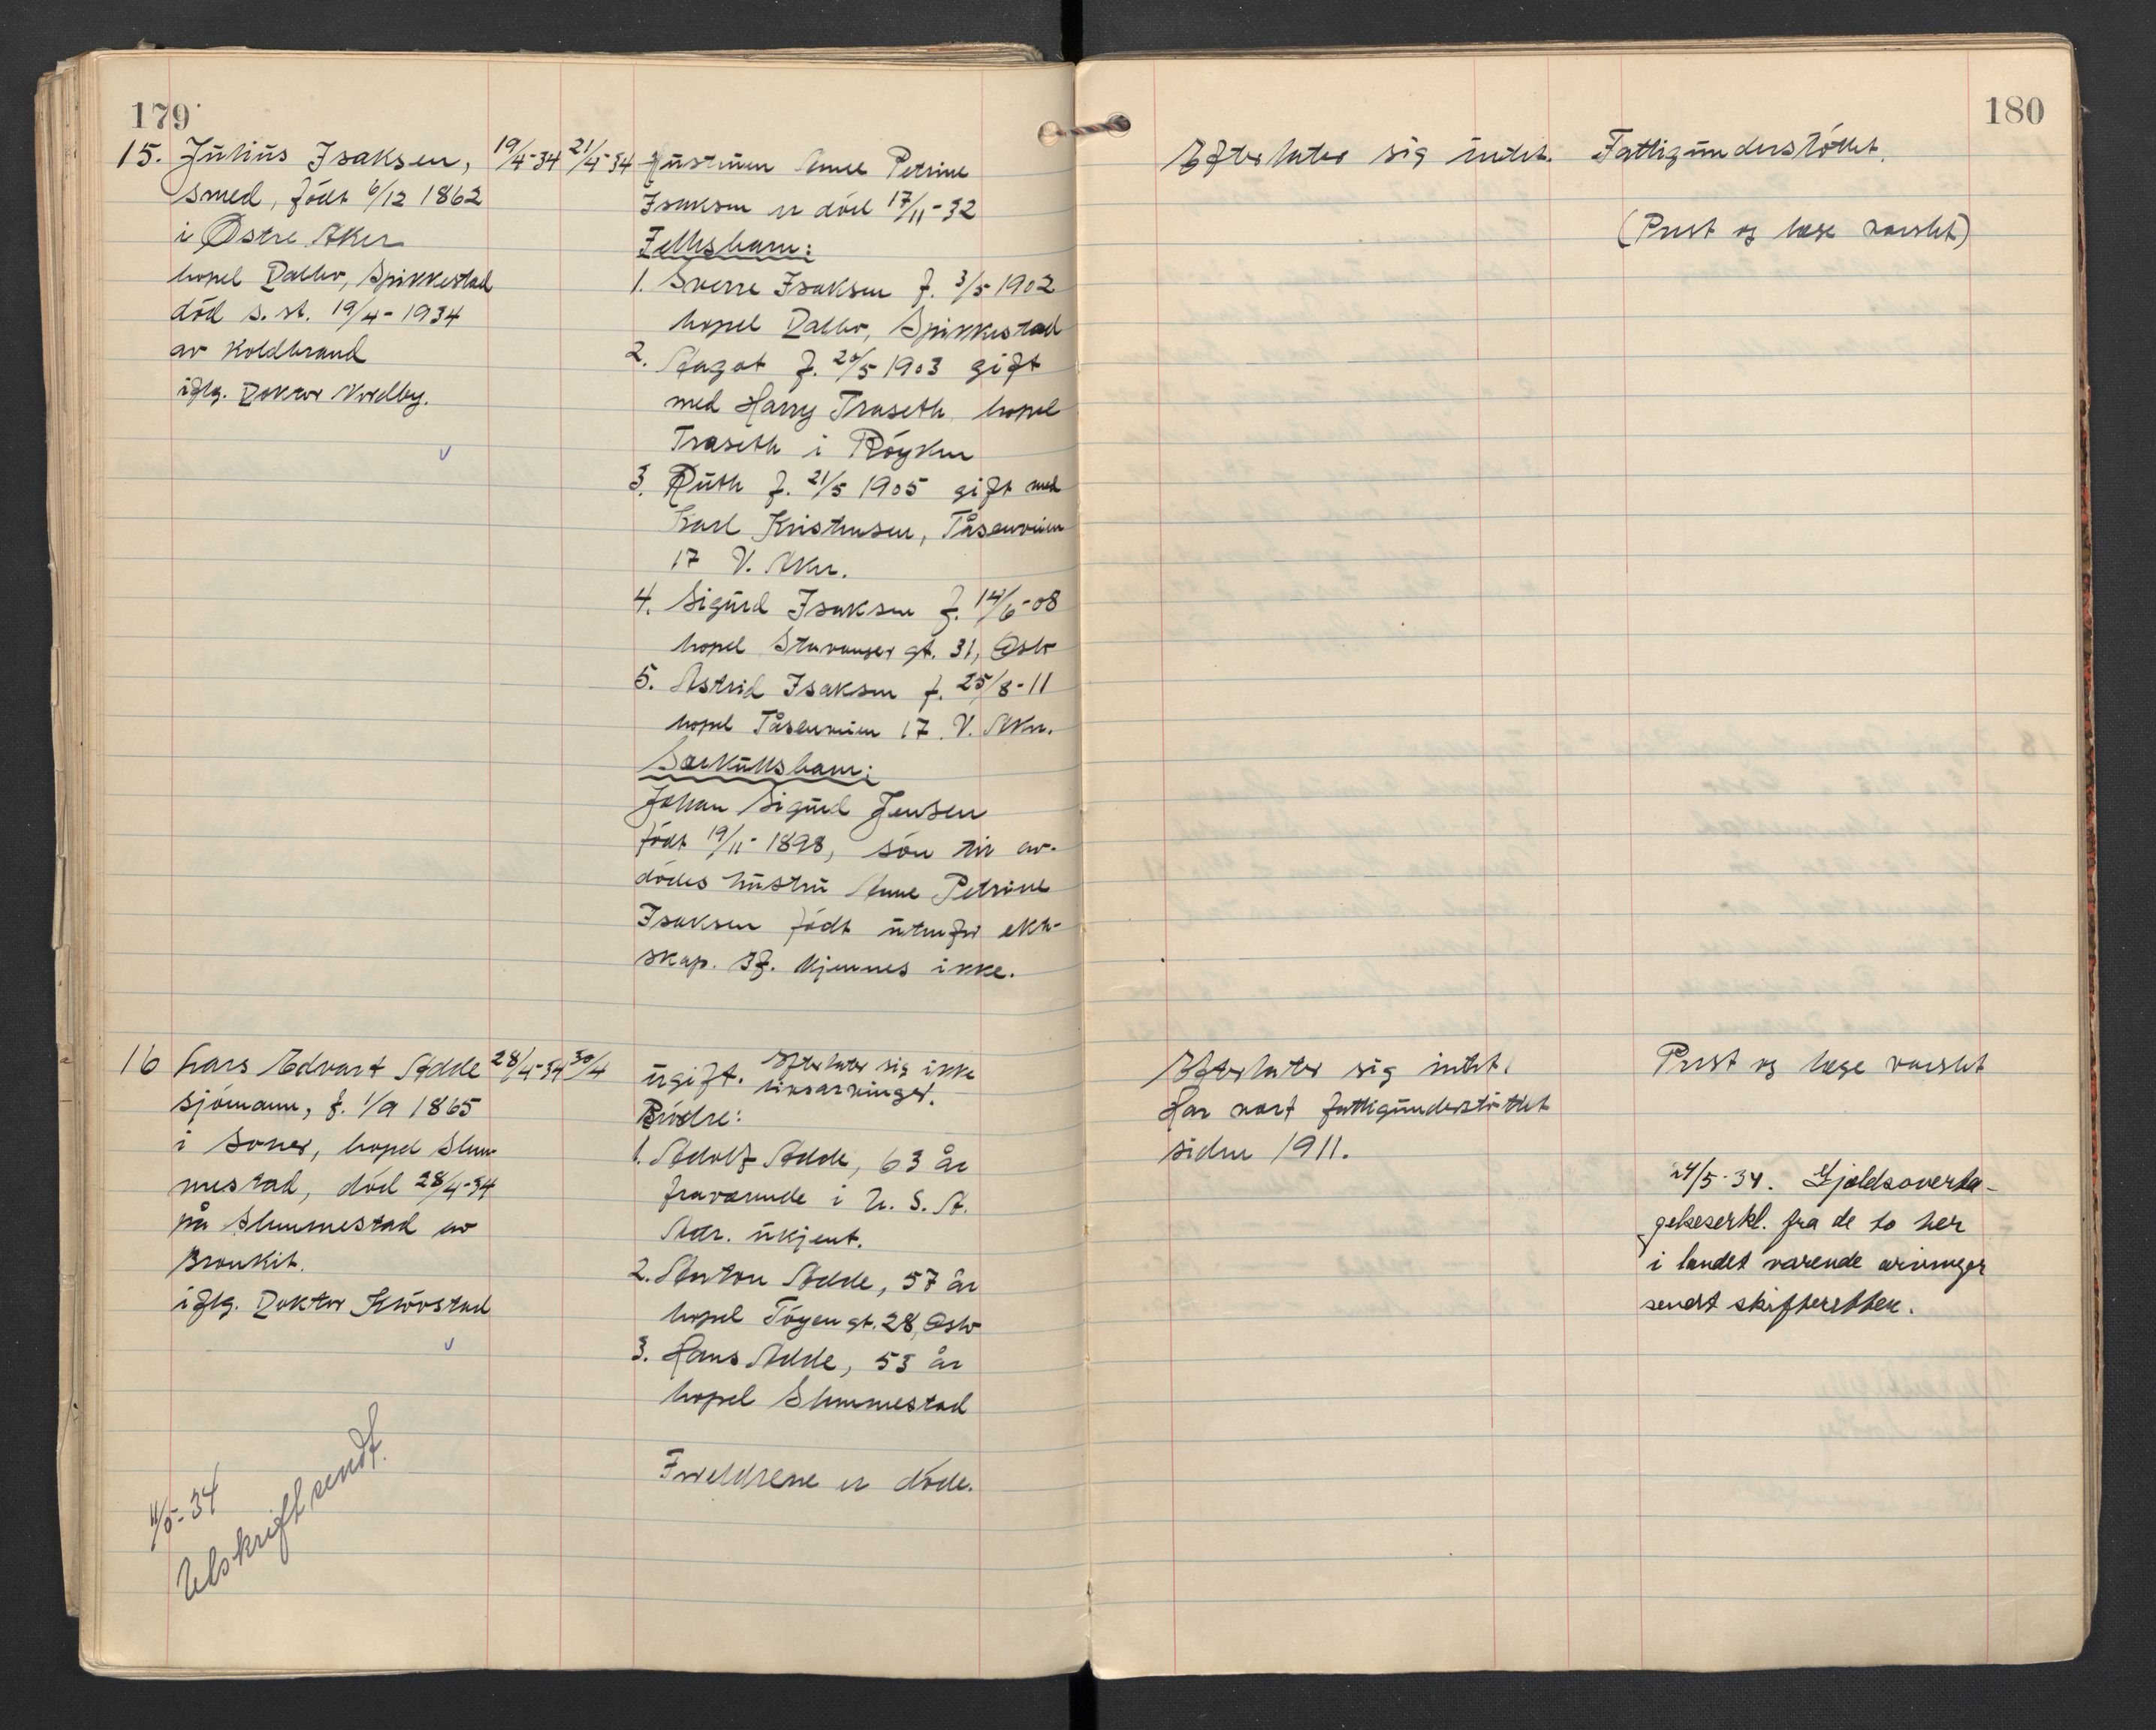 179
15. Julius Isaksen,
smed, født 6/12 1862
i Østre Aker
bopel Dalbo, Spikkestad
död s. st. 19/4 - 1934
av Koldbrand
iflg. Doktor Nordby.
19/4-34
21/4-34
Hustruen Anne Petrine
Isaksen er död 17/11-32
Fellesbarn:
1. Sverre Isaksen f. 3/5 1902
bopel Dalbo, Spikkestad
2. Aagot f. 20/5 1903 gift
med Harry Traseth bopel
Traseth i Röyken
3. Ruth f. 21/5 1905 gift med
Karl Kristensen, Tåsenveien
17 V. Aker.
4. Sigurd Isaksen f. 14/6-08
bopel Stavanger gt. 31, Oslo
5. Astrid Isaksen f. 25/8-11
bopel Tåsenveien 17. V. Aker.
Særkullsbarn:
Johan Sigurd Jensen
födt 19/11- 1898, sön til av-
dödes hustru Anne Petrine
Isaksen födt utenfor ekte-
skap. Bf. kjennes ikke.
16 Lars Edvart Adde
sjömann, f. 1/9 1865
i Soner, bopel Slem-
mestad, död 28/4-34
på Slemmestad av
Bronkit.
iflg. Doktor Klövstad
28/4-34
30/4
ugift. Efterlater sig ikke
livsarvinger.
Brödre:
1. Adolf Adde, 63 år
fraværende i U. S. A.
Adr. ukjent.
2. Anton Adde, 57 år
bopel Töyen gt. 28, Oslo
3. Hans Adde, 53 år
bopel Slemmestad
Foreldrene er döde.
11/5-34
Utskrift sendt.
180
Efterlater sig intet. Fattigunderstöttet.
(Prest og læge varslet)
Efterlater sig intet.
Har vært fattigunderstöttet
siden 1911.
Prest og læge varslet
24/5-34. Gjældsoverta-
gelseserkl. fra de to her
i landet værende arvinger
sendt skifteretten.